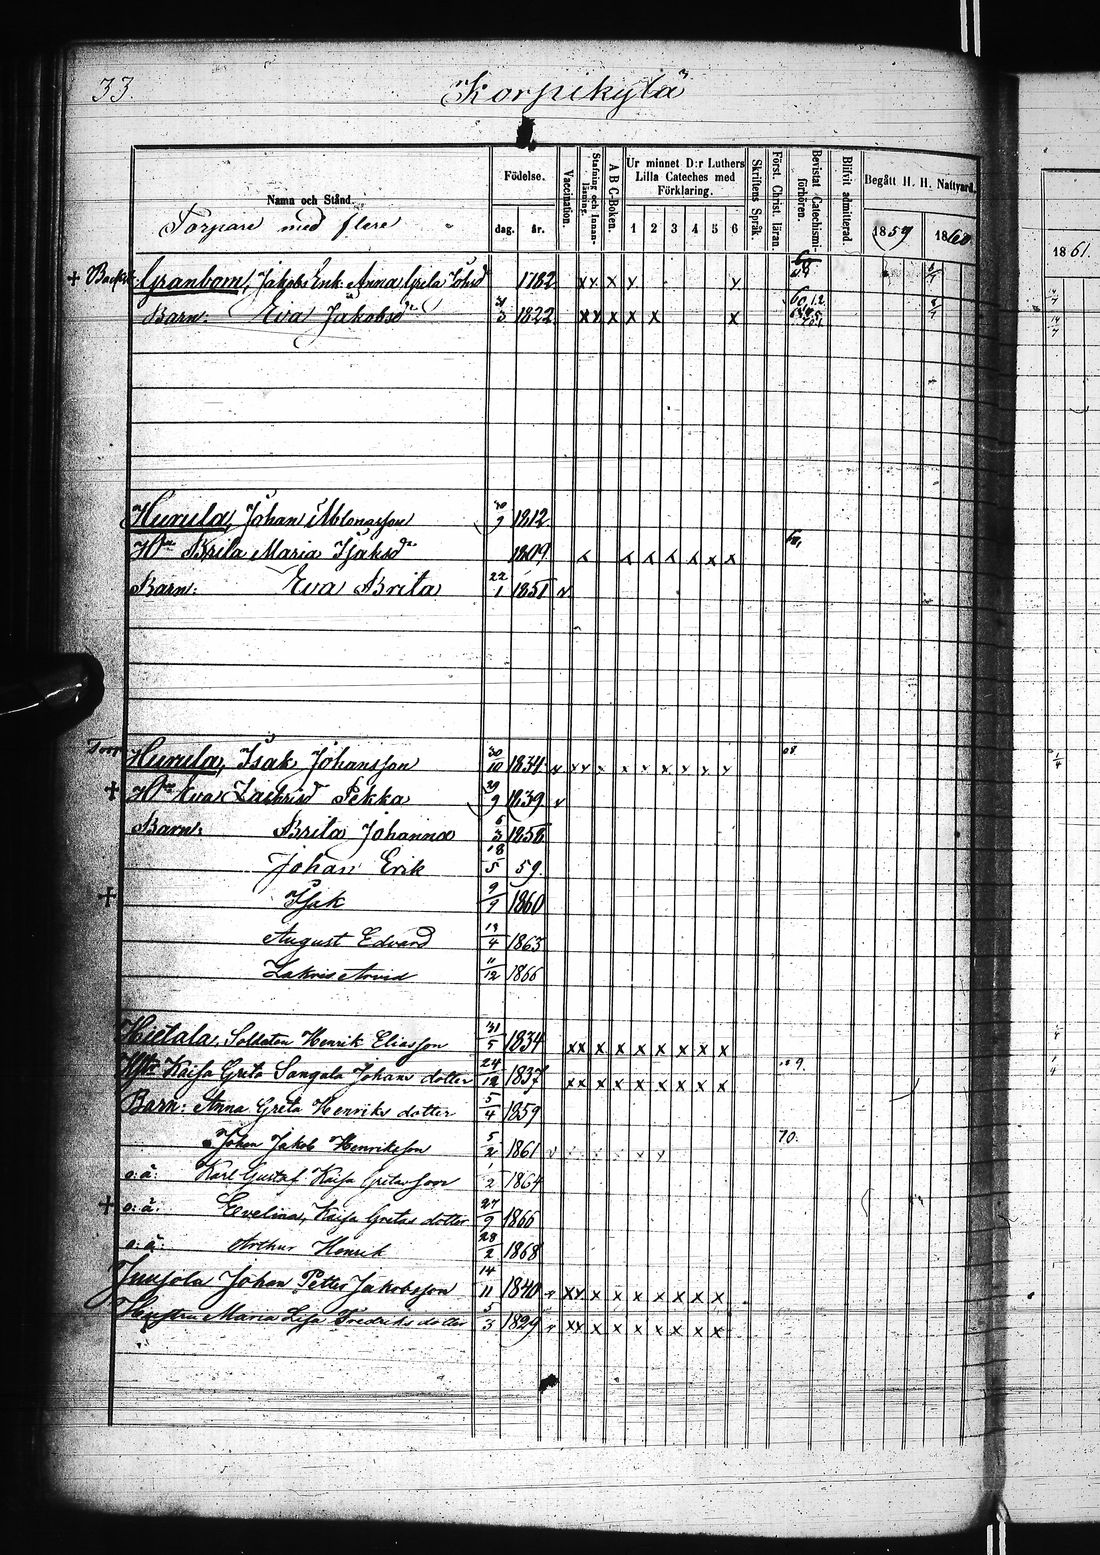 33.
Korpikylä
Namn och Stånd.
Torpare med flere
Födelse.
dag. år.
Vaccination.
Stafning och Innanläsning.
A B C-Boken.
Ur minnet D:r Luthers Lilla Cateches med Förklaring.
1 2 3 4 5 6
Skriftens Språk.
Först. Christ. läran.
Bevistat Catechismiförhören.
Blifvit admitterad.
Begått H. H. Nattvard.
1859 1860
1861
+ Granbom, Jakobs Enk. Anna Greta Johsd 1782
Barn: Eva Jakobsd 1822
Hurula, Johan 30/9 1812
Hu Brita Maria Isaksdr 1809
Barn: Eva Brita 22/1 1851
Torp Hurula, Isak Johansson 30/10 1834
+ Hu Eva Zachrisd Pekka 29/9 1839
Barn: Brita Johanna 6/3 1858
Johan Erik 18/5 59.
+ Isak 9/9 1860
August Edvard 13/4 1863
Zakris Arvid 11/12 1866
Hietala, Soldaten Henrik Eliasson 31/5 1834
Hstr Kaisa Greta Sangala Johans dotter 24/12 1837
Barn: Anna Greta Henriks dotter 5/4 1859
Johan Jakob Henriksson 5/2 1861
o: ä: Karl Gustaf Kaisa Gretas son 1/2 1864
+ o: ä: Evelina, Kaisa Gretas dotter 27/9 1866
o: ä: Arthur Henrik 28/2 1868
Junsola Johan Petter Jakobsson 14/11 1840
Hustru Maria Lisa Fredriks dotter 5/3 1829